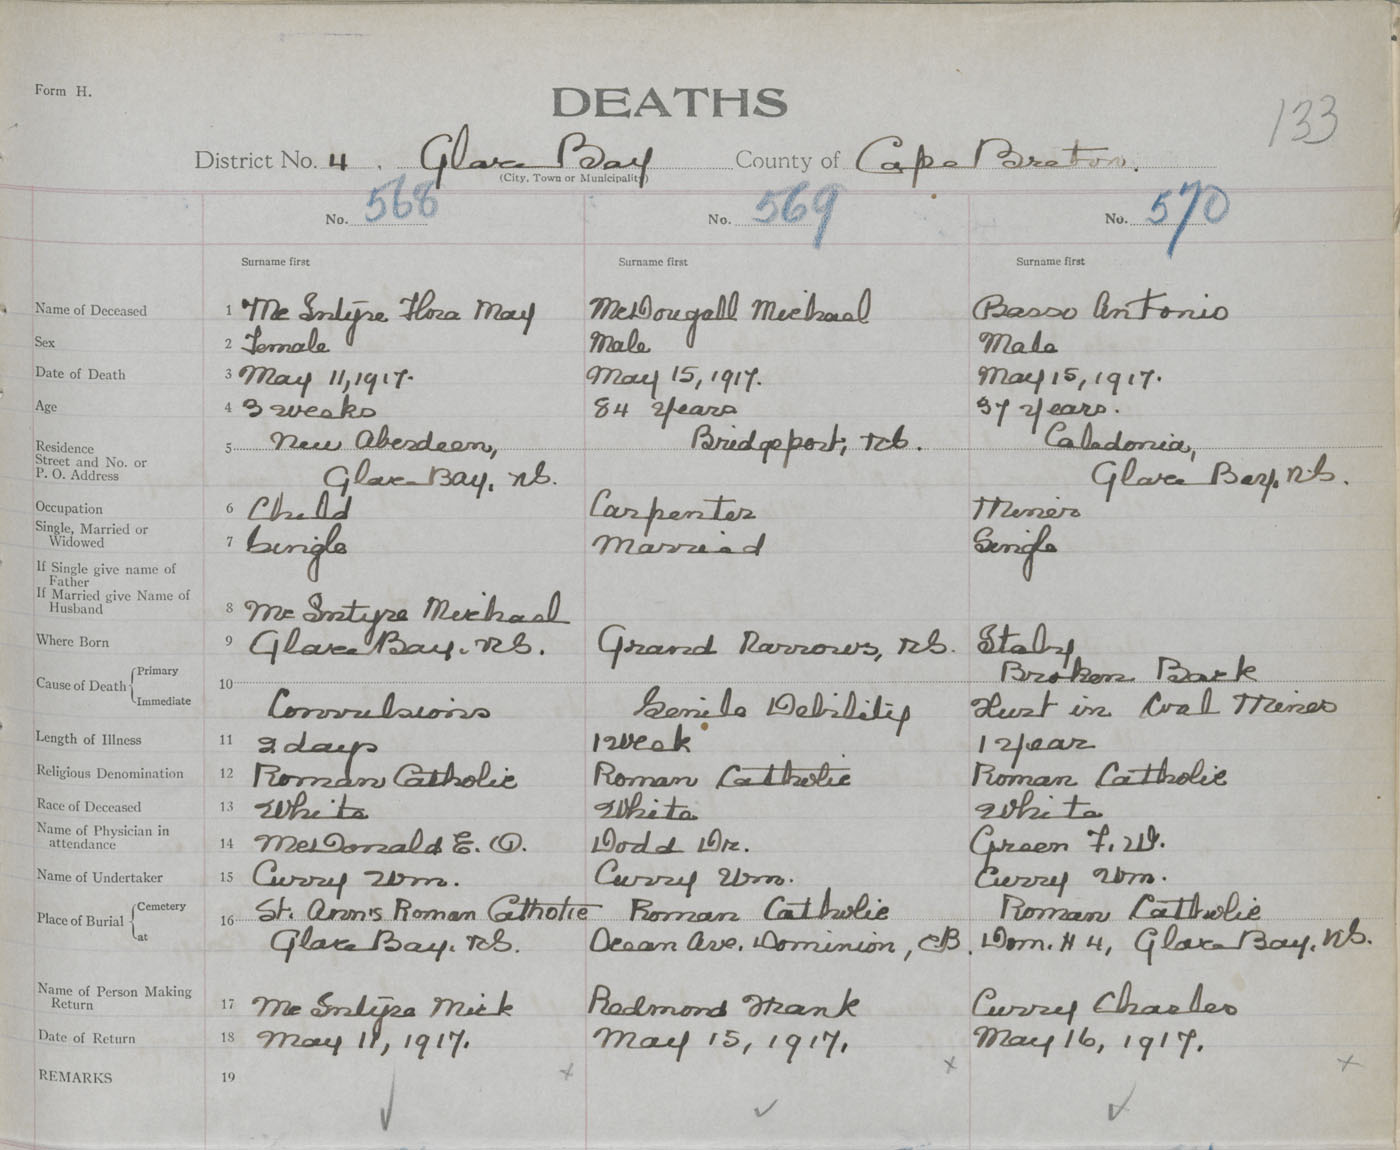 Form H.
DEATHS
133
District No. 4. Glace Bay County of Cape Breton.
(City, Town or Municipality)
No. 568 No. 569 No. 570
Surname first Surname first Surname first
Name of Deceased 1 McIntyre Flora May McDougall Michael Basso Antonio
Sex 2 Female Male Male
Date of Death 3 May 11, 1917. May 15, 1917. May 15, 1917.
Age 4 3 weeks 84 Years 37 Years.
Residence 5 New Aberdeen, Bridgeport, N.S. Caledonia,
Street and No. or
P. O. Address Glace Bay, N.S. Glace Bay, N.S.
Occupation 6 Child Carpenter Miner
Single, Married or
Widowed 7 Single Married Single
If Single give name of
Father
If Married give Name of
Husband 8 McIntyre Michael
Where Born 9 Glace Bay. N.S. Grand Narrows, N.S. Italy
Cause of Death { Primary 10 Broken Back
Immediate Convulsions Senile Debility Hurt in Coal Mines
Length of Illness 11 2 days 1 week 1 Year
Religious Denomination 12 Roman Catholic Roman Catholic Roman Catholic
Race of Deceased 13 White White White
Name of Physician in
attendance 14 McDonald E. O. Dodd Dr. Green F. W.
Name of Undertaker 15 Curry Wm. Curry Wm. Curry Wm.
Place of Burial { Cemetery 16 St. Ann's Roman Catholic Roman Catholic Roman Catholic
at Glace Bay. N.S. Ocean Ave. Dominion, C.B. Dom. # 4, Glace Bay. N.S.
Name of Person Making
Return 17 McIntyre Mick Redmond Frank Curry Charles
Date of Return 18 May 11, 1917. May 15, 1917. May 16, 1917.
REMARKS 19 x x x
✓ ✓ ✓